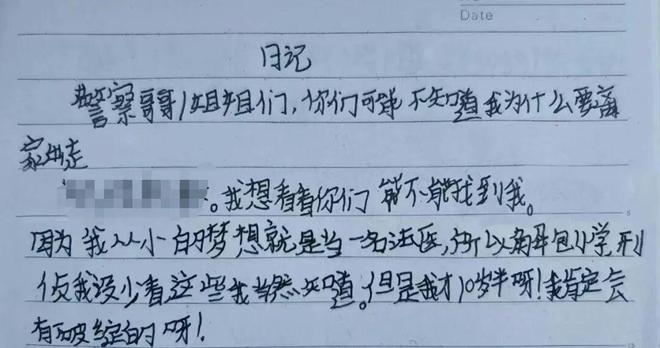 Date
日记
警察哥哥/姐姐们,你们可能不知道我为什么要离
家出走
。我想看看你们能不能找到我。
因为我从小的梦想就是当一名法医,所以解剖学刑
侦我没少看这些我当然知道。但是我才10岁半呀!我肯定会
有破绽的呀!